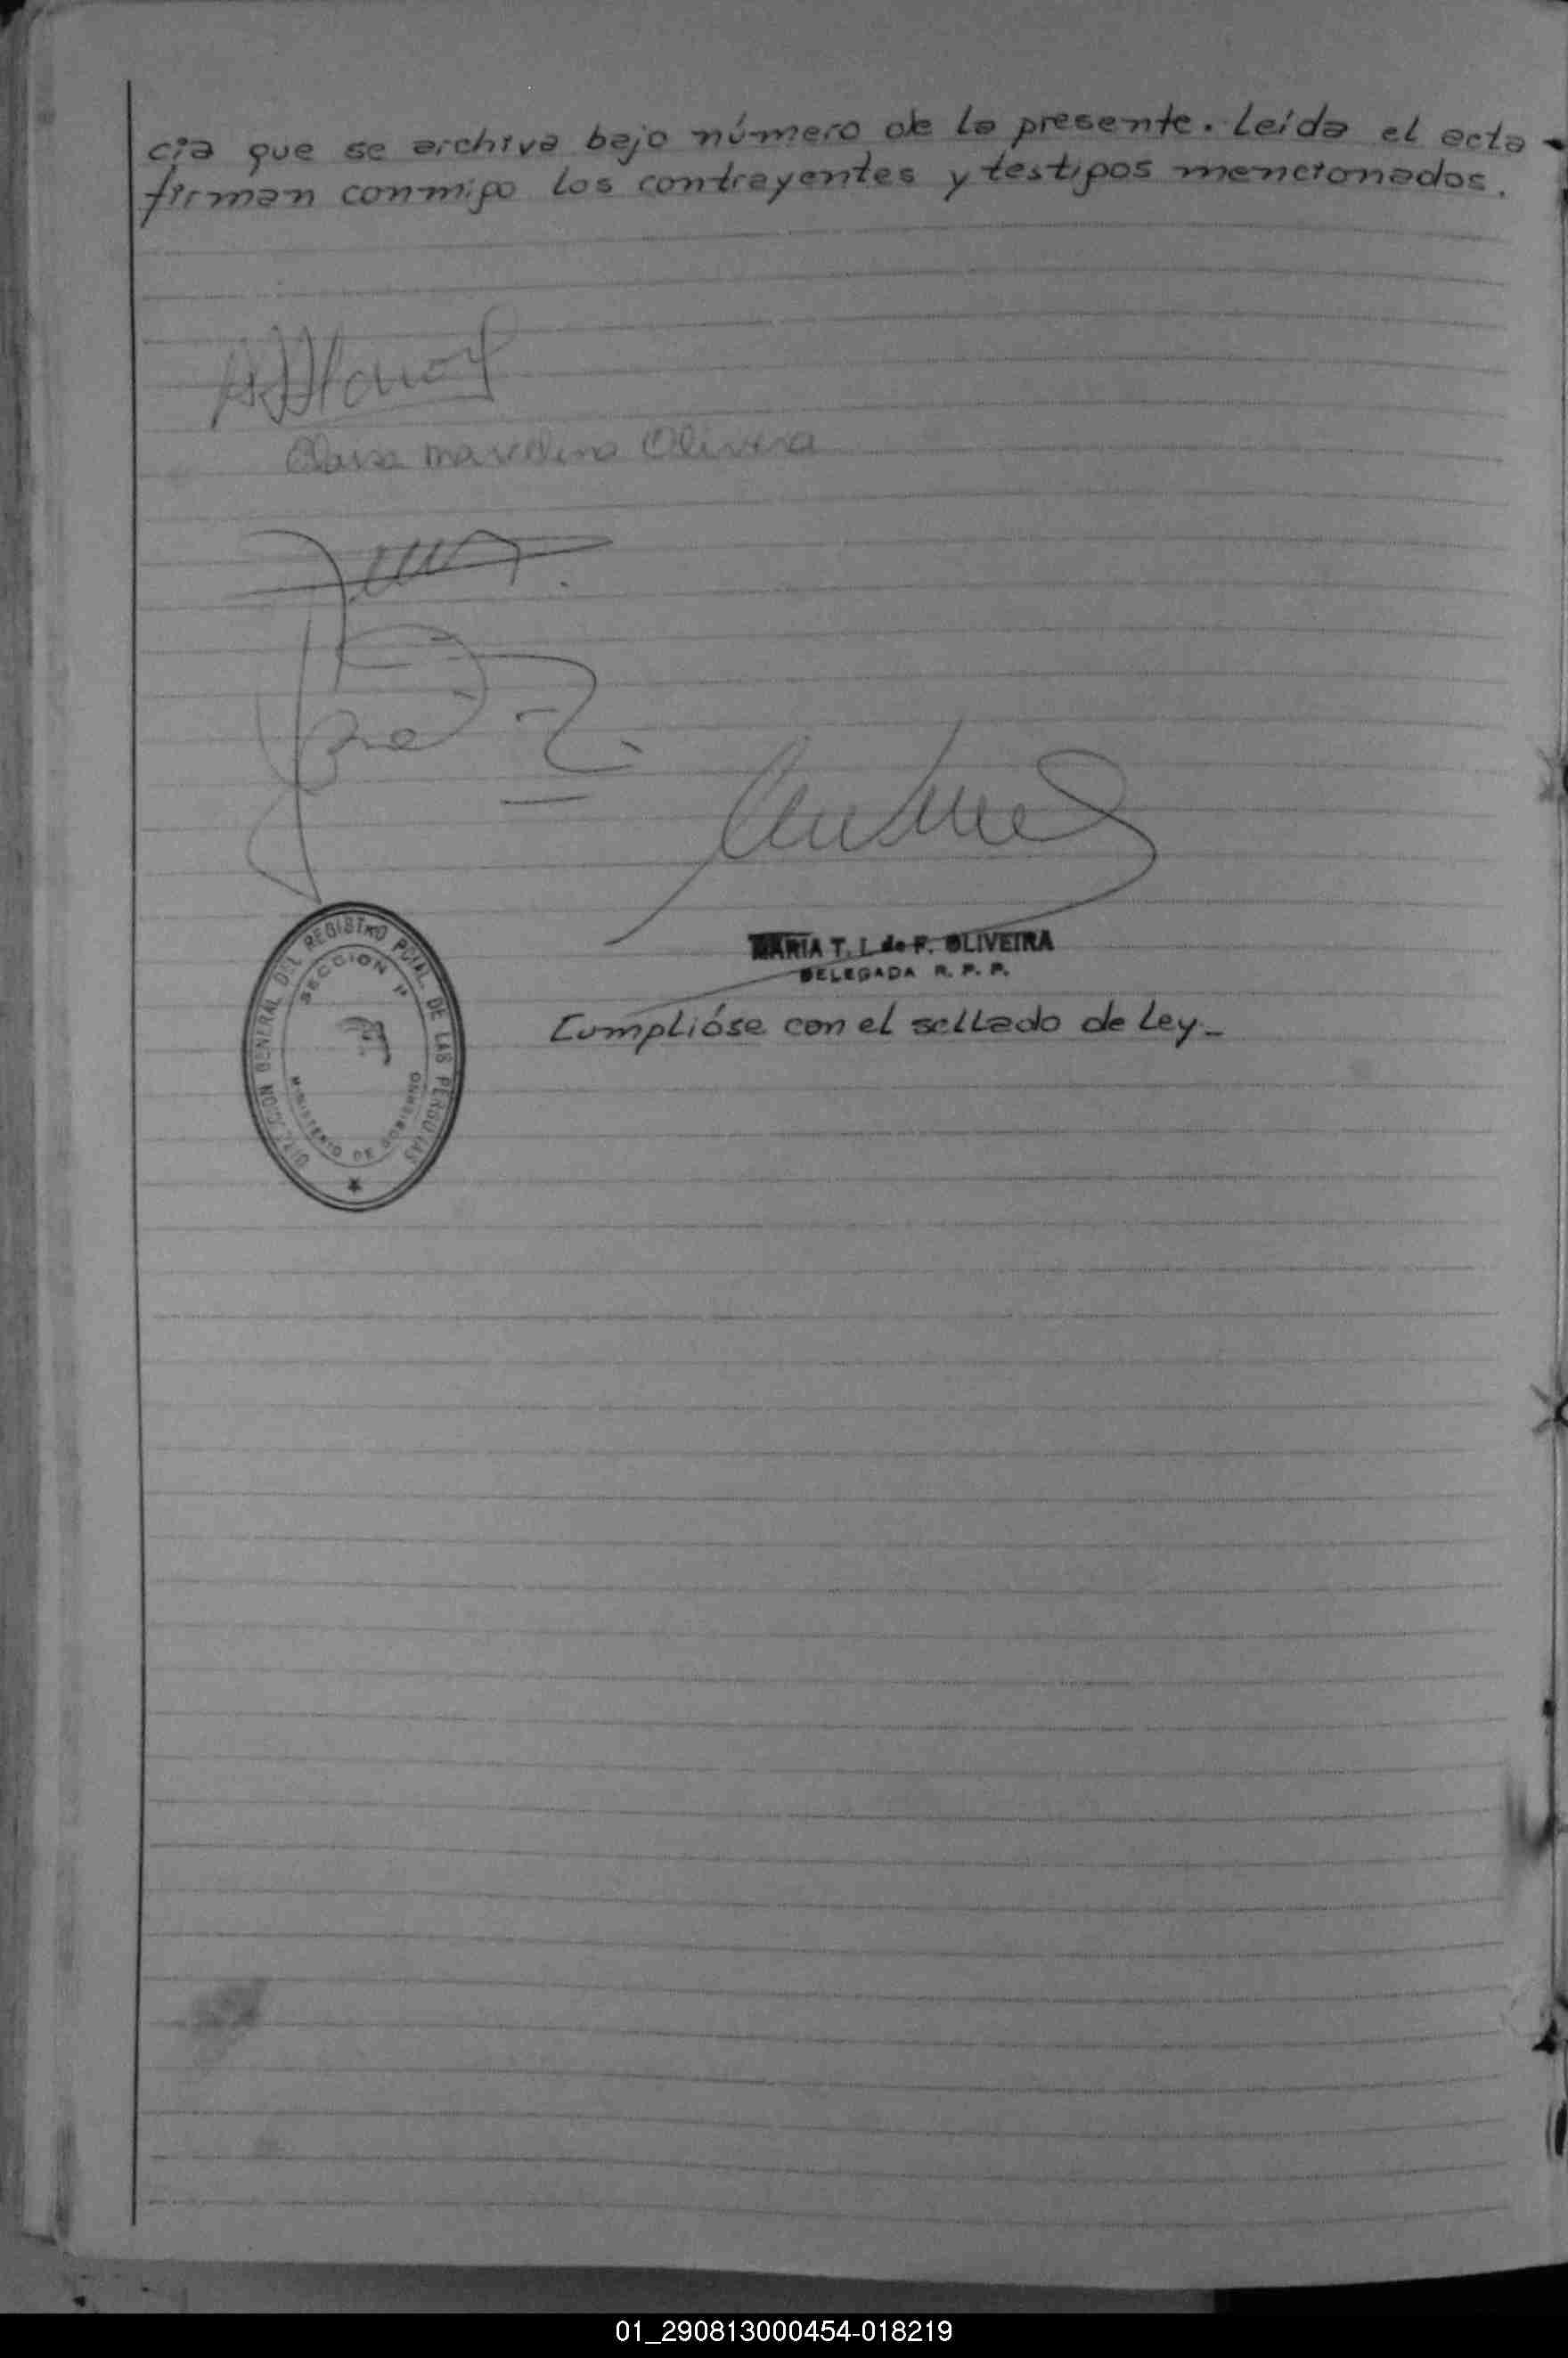 cia que se archiva bajo número de la presente. Leída el acta
firman conmigo los contrayentes y testigos mencionados.
Olivera
MARIA T. I. de F. OLIVEIRA
DELEGADA R. P. P.
Cumplióse con el sellado de Ley_
DIRECCION GENERAL DEL REGISTRO PCIAL. DE LAS PERSONAS
SECCION 1ª
MINISTERIO DE GOBIERNO
01_290813000454-018219